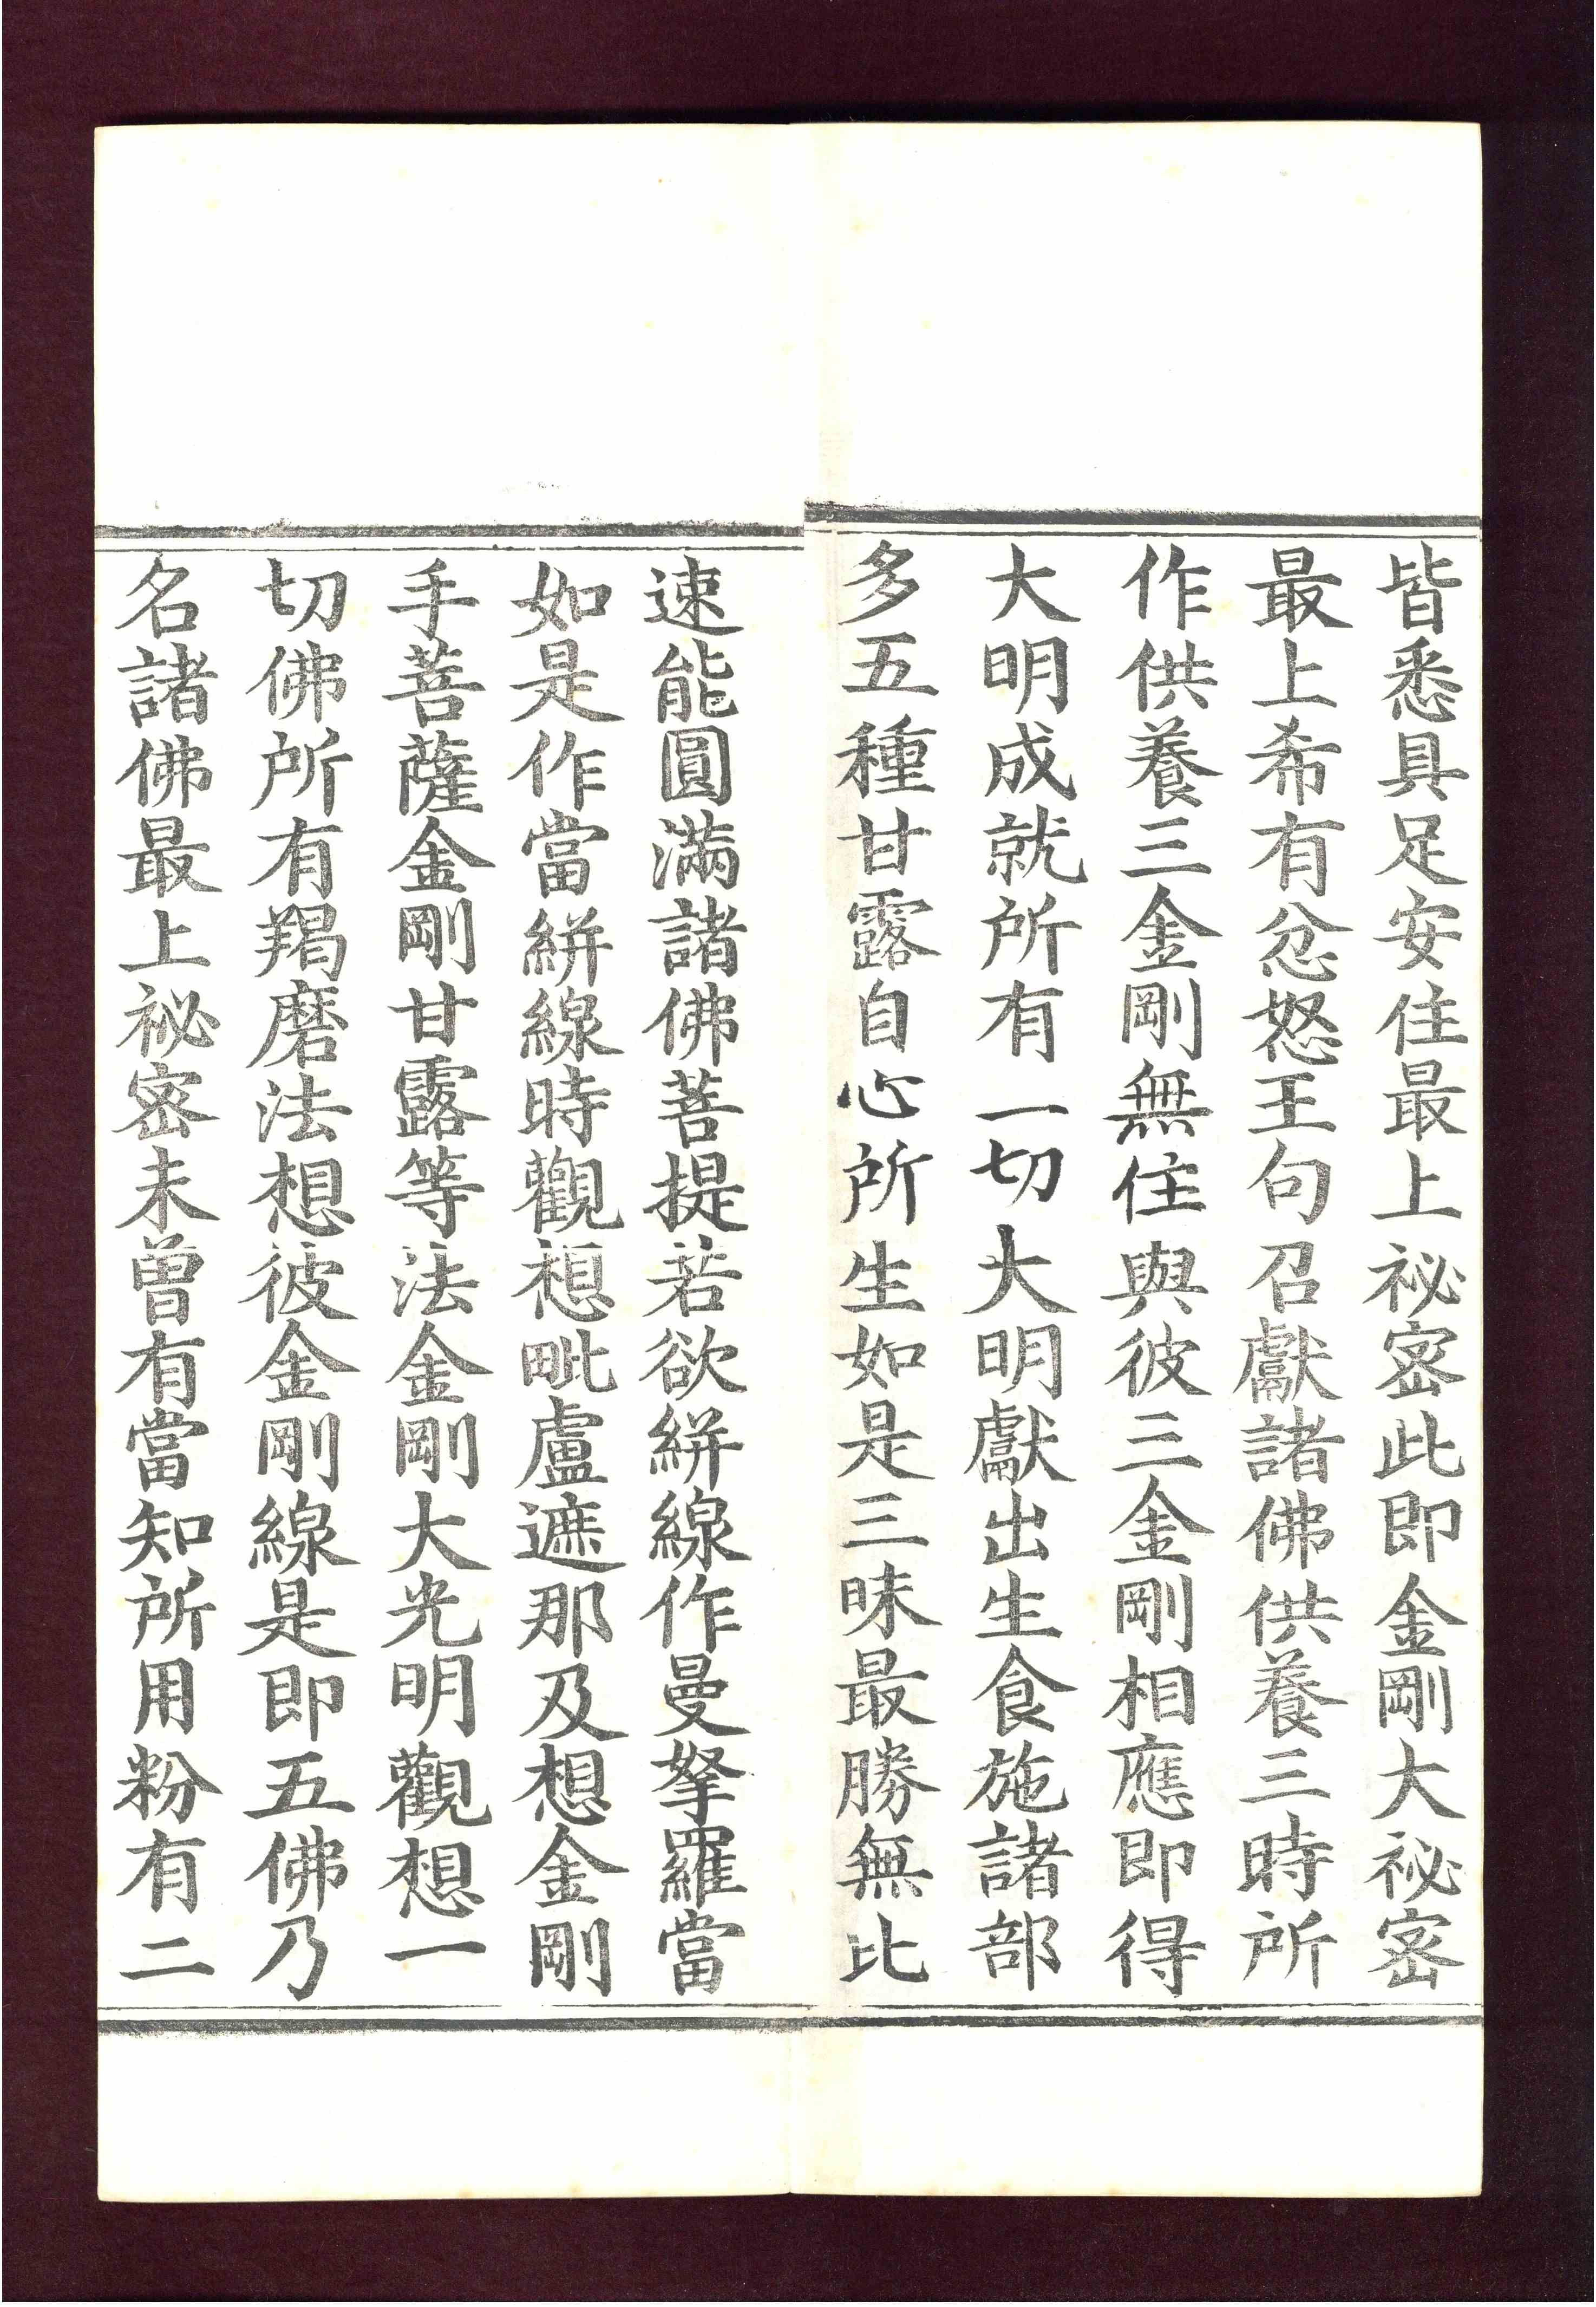 皆悉具足安住最上祕密此即金剛大祕密
最上希有忿怒王句召獻諸佛供養三時所
作供養三金剛無住與彼三金剛相應即得
大明成就所有一切大明獻出生食施諸部
多五種甘露自心所生如是三昧最勝無比
速能圓滿諸佛菩提若欲絣線作曼拏羅當
如是作當絣線時觀想毗盧遮那及想金剛
手菩薩金剛甘露等法金剛大光明觀想一
切佛所有羯磨法想彼金剛線是即五佛乃
名諸佛最上祕密未曾有當知所用粉有二